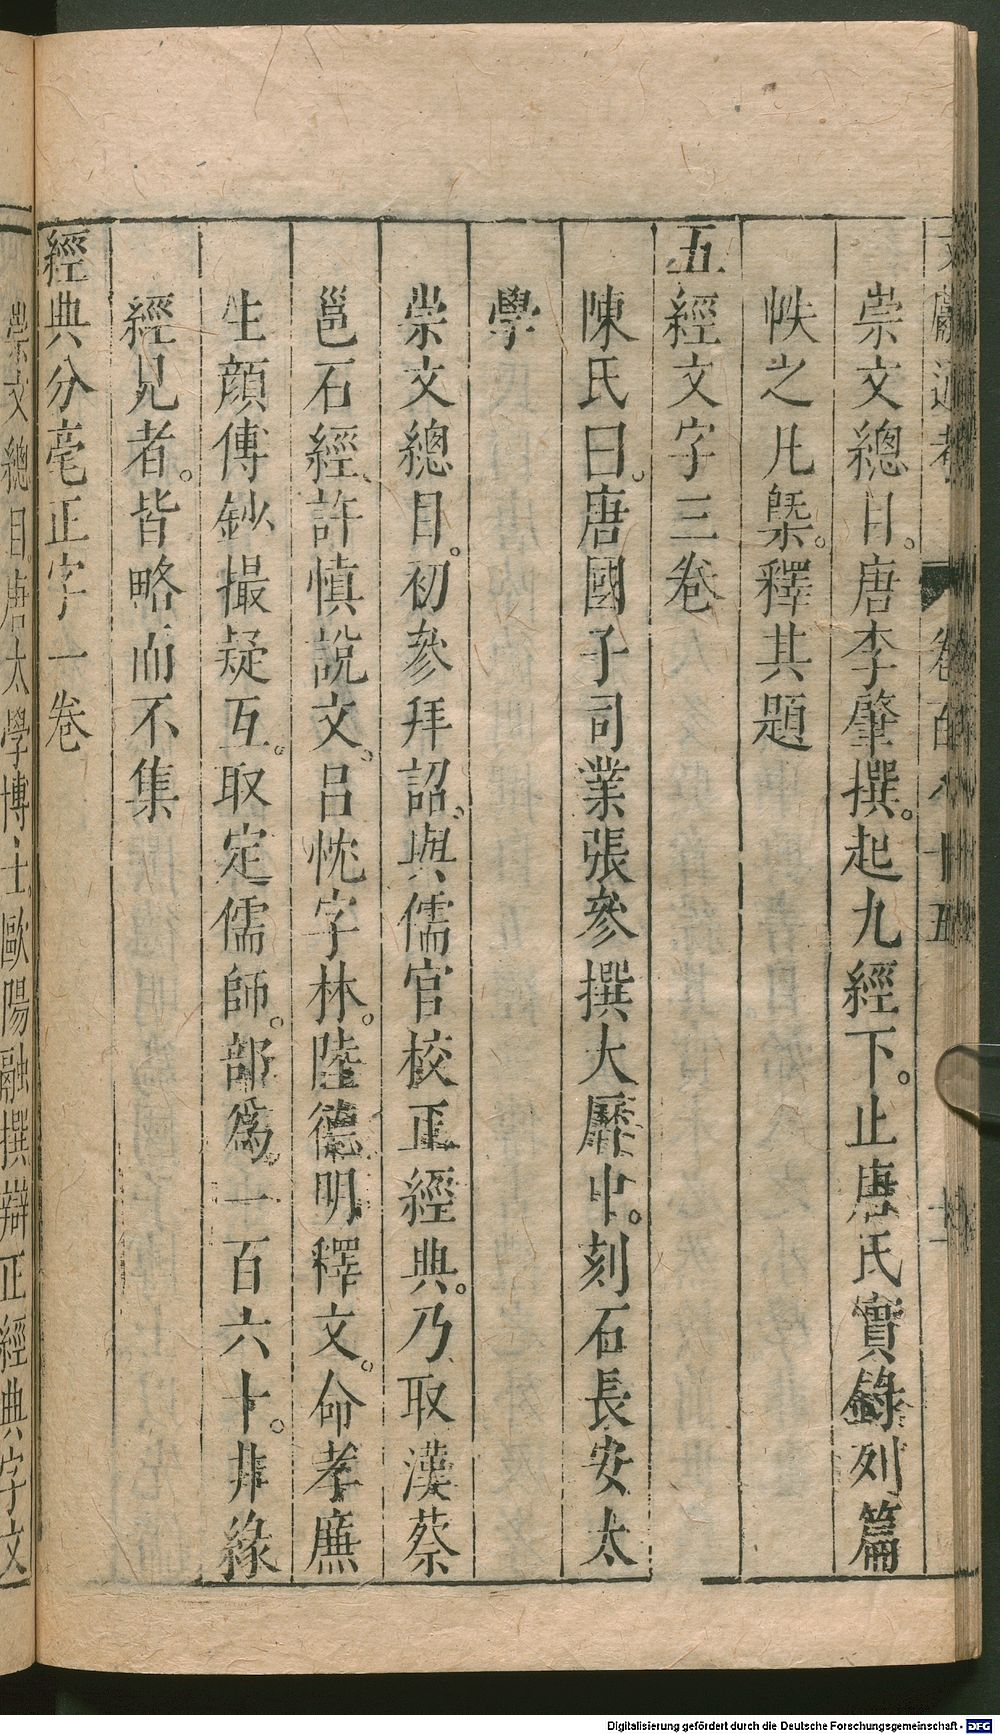 崇文總目。唐李肇撰。起九經下。止唐氏實錄列篇
帙之凡槩。釋其題
五經文字三卷
陳氏曰。唐國子司業張參撰大曆中。刻石長安太
學
崇文總目。初參拜詔。與儒官校正經典。乃取漢蔡
邕石經、許慎說文、呂忱字林。陸德明釋文。命孝廉
生顔傳鈔撮疑互。取定儒師。部爲一百六十。非緣
經見者。皆略而不集
經典分毫正字一卷
崇文總目。唐太學博士歐陽融撰辯正經典字文
Digitalisierung gefördert durch die Deutsche Forschungsgemeinschaft - DFG